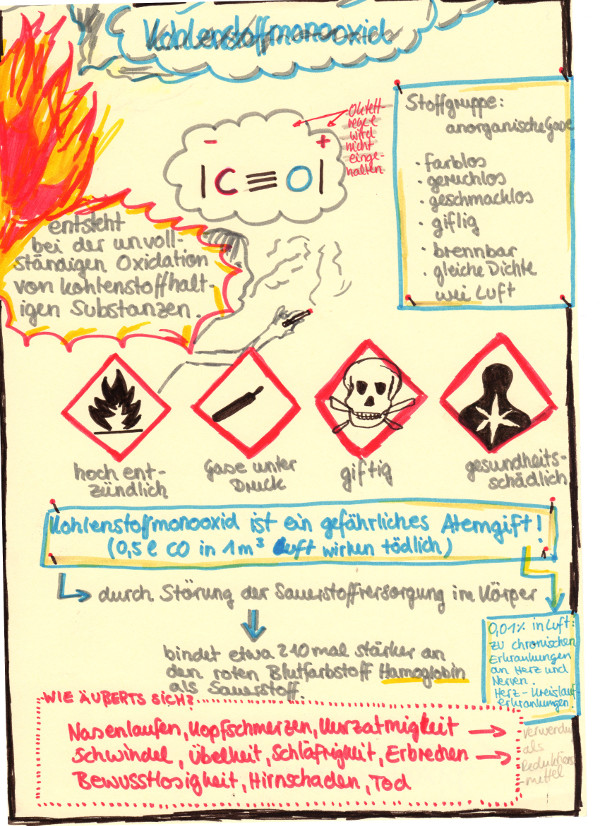 Kohlenstoffmonooxid
Oktett
regel
wird
nicht
einge-
halten.
- +
|C≡O|
Stoffgruppe:
anorganische Gase
· farblos
· geruchlos
· geschmacklos
· giftig
· brennbar
· gleiche Dichte
wei Luft
entsteht
bei der unvoll-
ständigen Oxidation
von kohlenstoffhalt-
igen Substanzen.
hoch ent-
zündlich
Gase unter
Druck
giftig
gesundheits-
schädlich
Kohlenstoffmonooxid ist ein gefährliches Atemgift!
(0,5 l CO in 1 m³ Luft wirken tödlich)
durch Störung der Sauerstoffversorgung im Körper
bindet etwa 210 mal stärker an
den roten Blutfarbstoff Hämoglobin
als Sauerstoff.
0,01% in Luft:
zu chronischen
Erkrankungen
an Herz und
Nerven.
Herz-Kreislauf
erkrankungen.
WIE ÄUßERTS SICH?
Nasenlaufen, Kopfschmerzen, Kurzatmigkeit →
Schwindel, Übelkeit, Schläfrigkeit, Erbrechen →
Bewusstlosigkeit, Hirnschaden, Tod
als
Reduktions
-mittel